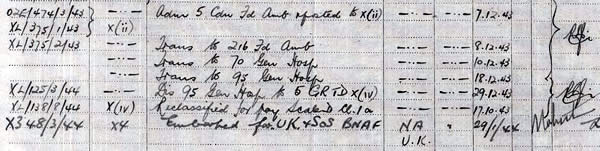 O2E/474/3/43 Adm 5 Cdn Fd Amb reposted to X(ii) 7.12.43
XL/375/1/43 X(ii)
XL/375/2/43 Trans to 216 Fd Amb 8.12.43
Trans to 70 Gen Hosp 10.12.43
Trans to 95 Gen Hosp 18.12.43
XL/125/3/44 Dis 95 Gen Hosp to 5 GRTD X(iv) 29.12.43
XL/138/8/44 X(iv) Reclassified for pay 17.10.43
X348/3/44 X4 Embarked for U.K & SOS BNAF NA " 29/1/44
U.K.